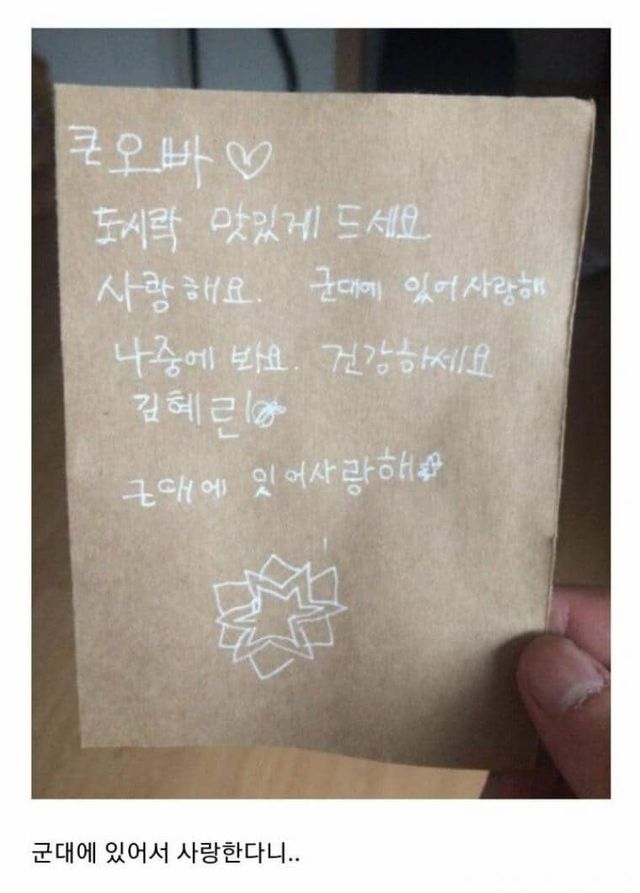 큰오빠♡
도시락 맛있게 드세요
사랑해요. 군대에 있어사랑해
나중에 봐요. 건강하세요
김혜린
군대에 잇어사랑해
군대에 있어서 사랑한다니..